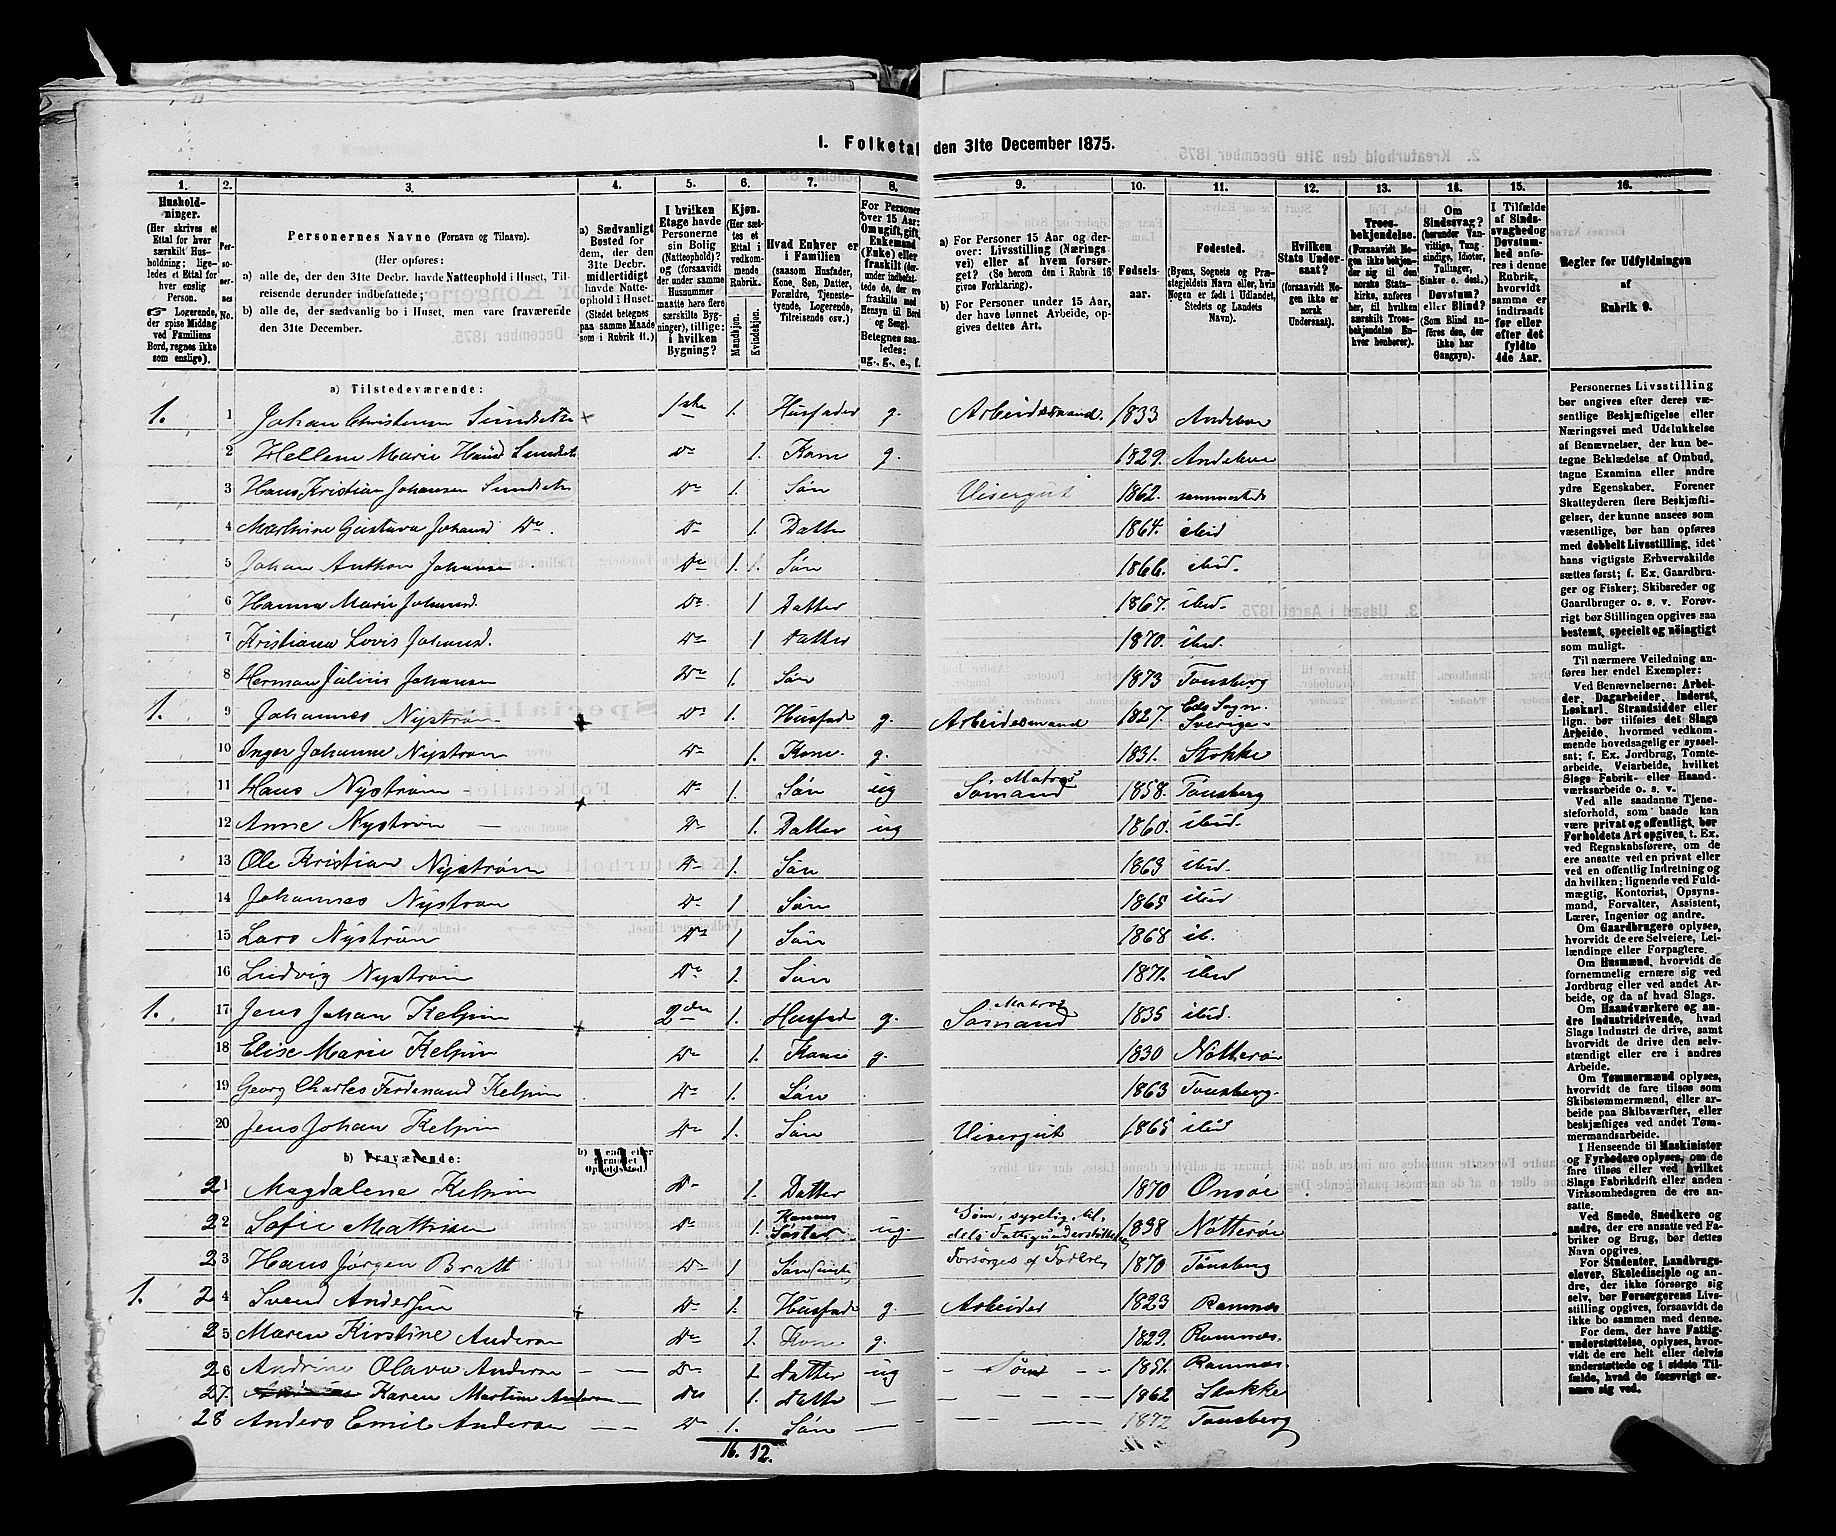 1. Folketal den 31te December 1875.
1. 2. 3. 4. 5. 6. 7. 8. 9. 10. 11. 12. 13. 14. 15. 16.
Hushold-
ninger.
(Her skrives et
Ettal for hver
særskilt Hus-
holdning; lige-
ledes et Ettal for
hver enslig
Person.
☞ Logerende,
der spise Middag
ved Familiens
Bord, regnes ikke
som enslige).
Per-
so-
ner-
nes
No.
Personernes Navne (Fornavn og Tilnavn).
(Her opføres:
a) alle de, der den 31te Decbr. havde Natteophold i Huset, Til-
reisende derunder indbefattede;
b) alle de, der sædvanlig bo i Huset, men vare fraværende
den 31te December.
a) Sædvanligt
Bosted for
dem, der den
31te Decbr.
midlertidigt
havde Natte-
ophold i Huset.
(Stedet betegnes
paa samme Maade
som i Rubrik 11.)
I hvilken
Etage havde
Personerne
sin Bolig
(Natteophold)?
og (forsaavidt
under samme
Husnummer
maatte høre flere
særskilte Byg-
ninger), tillige:
i hvilken
Bygning?
Kjøn.
(Her sæt-
tes et
Ettal i
vedkom-
mende
Rubrik.
Mandkjøn.
Kvindekjøn.
Hvad Enhver er
i Familien
(saasom Husfader,
Kone, Søn, Datter,
Forældre, Tjeneste-
tyende, Logerende,
Tilreisende osv.)
For Personer
over 15 Aar:
Om ugift, gift,
Enkemand
(Enke) eller
fraskilt (der-
under indbefat-
tede de, der ere
fraskilte med
Hensyn til Bord
og Seng).
Betegnes saa-
ledes:
ug., g., e., f.
a) For Personer 15 Aar og der-
over: Livsstilling (Nærings-
vei) eller af hvem forsør-
get? (Se herom den i Rubrik 16
givne Forklaring).
b) For Personer under 15 Aar,
der have lønnet Arbeide, op-
gives dettes Art.
Fødsels-
aar.
Fødested.
(Byens, Sognets og Præ-
stegjeldets Navn eller, hvis
Nogen er født i Udlandet,
Stedets og Landets
Navn).
Hvilken
Stats Under-
saat?
(forsaavidt No-
gen ikke er
norsk
Undersaat).
Troes-
bekjendelse.
(Forsaavidt No-
gen ikke bekjen-
der sig til den
norske Stats-
kirke, anføres
her, til hvilken
særskilt Troes-
bekjendelse En-
hver henhører).
Om
Sindssvag?
(herunder Van-
vittige, Tung-
sindige, Idioter,
Tullinger,
Sinker o. desl.)
Døvstum?
eller Blind?
(Som Blind an-
føres den, der
ikke har
Gangsyn).
I Tilfælde
af Sinds-
svaghed og
Døvstum-
hed anfø-
res i denne
Rubrik,
hvorvidt
samme er
indtraadt
før eller
efter det
fyldte
4de Aar.
Regler for Udfyldningen
af
Rubrik 9.
a) Tilstedeværende:
1. 1 Johan Christensen Sundsetn + 1ste 1. Husfader g. Arbeidsmand. 1833 Andebo
2 Hellene Marie Hansd Sundet Do 1. Kone g. 1829. Andebo
3 Hans Kristian Johansen Sundset Do 1. Søn Visergut 1862. sammesteds
4 Mathine Gustava Johansd Do. Do 1. Datter 1864. ibid
5 Johan Anthon Johansen Do 1. Søn 1866. ibid.
6 Hanna Marie Johansd. Do. 1 Datter 1867. ibid.
7 Kristiana Lovis Johansd. Do 1 Datter 1870. ibid.
8 Herman Julius Johansen Do 1. Søn 1873 Tønsberg
1. 9 Johannes Nystrøm + Do 1. Husfade g. Arbeidsmand 1827. Eds Sogn. Sverige
10 Inger Johanne Nystrøm Do 1. Kone. g. 1831. Stokke
11 Hans Nystrøm + Do 1. Søn ug Sømand Matros 1858. Tønsberg
12 Anne Nystrøm — Do 1. Datter ug 1860. ibid.
13 Ole Kristian Nystrøm Do 1. Søn 1863 ibid.
14 Johannes Nystrøm Do 1 Søn 1865 ibid
15 Lars Nystrøm Do 1 Søn 1868 ib.
16 Ludvig Nystrøm Do 1. Søn 1871. ibid
1. 17 Jens Johan Kelpin + 2den 1. Husfade g. Sømand Matros 1835 ibid.
18 Elise Marie Kelpin Do 1. Kone g. 1830 Nøtterø
19 Georg Charles Ferdenand Kelpin Do 1. Søn 1863 Tønsberg.
20 Jens Johan Kelpin Do 1. Søn Visergut 1865 ibid
b) Fraværende:
21 Magdalena Kelpin Do 1. Datter 1870 Onsøe
22 Sofie Mathisen Do 1. Konens Søster ug. Søm, sygelig, til dels Fattigunderstøttelse 1838 Nøtterø
23 Hans Jørgen Bratt Do 1 Søn Forsørges af Forældre 1870 Tønsberg
1. 24 Svend Andersen + Do 1. Husfade g. Arbeider 1823 Ramnes
25 Maren Kirstine Andersen Do 1. Kone g. 1829. Ramnes.
26 Andrine Olava Andersen — — Do 1 Datter ug - Søm - - 1851. Ramnes.
27. Karen Martine Andersen — Do 1. Datte — 1862 Stokke
28 Anders Emil Andersen — — Do 1. Søn — 1872 Tønsberg
16. 12.
Personernes Livsstilling
bør angives efter deres væ-
sentlige Beskjæftigelse eller
Næringsvei med Udelukkelse
af Benævnelser, der kun be-
tegne Beklædelse af Ombud,
tagne Examina eller andre
ydre Egenskaber. Forener
Skatteyderen flere Beskjæfti-
gelser, der kunne ansees som
væsentlige, bør han opføres
med dobbelt Livsstilling, idet
hans vigtigste Erhvervskilde
sættes først; f. Ex. Gaardbru-
ger og Fisker; Skibsreder og
Gaardbruger o. s. v. Forøv-
rigt bør Stillingen opgives saa
bestemt, specielt og nøiagtigt
som muligt.
Til nærmere Veiledning an-
føres her endel Exempler:
Ved Benævnelserne: Arbei-
der, Dagarbeider, Inderst,
Løskarl, Strandsidder eller
lign. bør tilføies det Slags
Arbeide, hvormed vedkom-
mende hovedsagelig er syssel-
sat; f. Ex. Jordbrug, Tomte-
arbeide, Veiarbeide, hvilket
Slags Fabrik- eller Haand-
værksarbeide o. s. v.
Ved alle saadanne Tjene-
steforhold, som baade kan
være privat og offentligt, bør
Forholdets Art opgives, t. Ex.
ved Regnskabsførere, om de
ere ansatte ved en privat eller
ved en offentlig Indretning og
da hvilken; lignende ved Fuld-
mægtig, Kontorist, Opsyns-
mand, Forvalter, Assistent,
Lærer, Ingeniør og andre.
Om Gaardbrugere oplyses,
hvorvidt de ere Selveiere, Lei-
lændinge eller Forpagtere.
Om Husmænd, hvorvidt de
fornemmelig ernære sig ved
Jordbrug eller ved andet Ar-
beide, og da af hvad Slags.
Om Haandværkere og an-
dre Industridrivende, hvad
Slags Industri de drive, samt
hvorvidt de drive den selv-
stændigt eller ere i andres
Arbeide.
Om Tømmermænd oplyses,
hvorvidt de fare tilsøs som
Skibstømmermænd, eller ar-
beide paa Skibsværfter, eller
beskjæftiges ved andet Tøm-
mermandsarbeide.
I Henseende til Maskinister
og Fyrbødere oplyses, om de
fare tilsøs eller ved hvilket
Slags Fabrikdrift eller anden
Virksomhedsgren de ere an-
satte.
Ved Smede, Snedkere og
andre, der ere ansatte ved Fa-
briker og Brug, bør dettes
Navn opgives.
For Studenter, Landbrugs-
elever, Skoledisciple og an-
dre, der ikke forsørge sig
selv, bør Forsørgerens Livs-
stilling opgives, forsaavidt de
ikke bo sammen med denne.
For dem, der have Fattig-
understøttelse, oplyses, hvor-
vidt de ere helt eller delvis
understøttede og i sidste Til-
fælde, hvad de forøvrigt er-
nære sig ved.